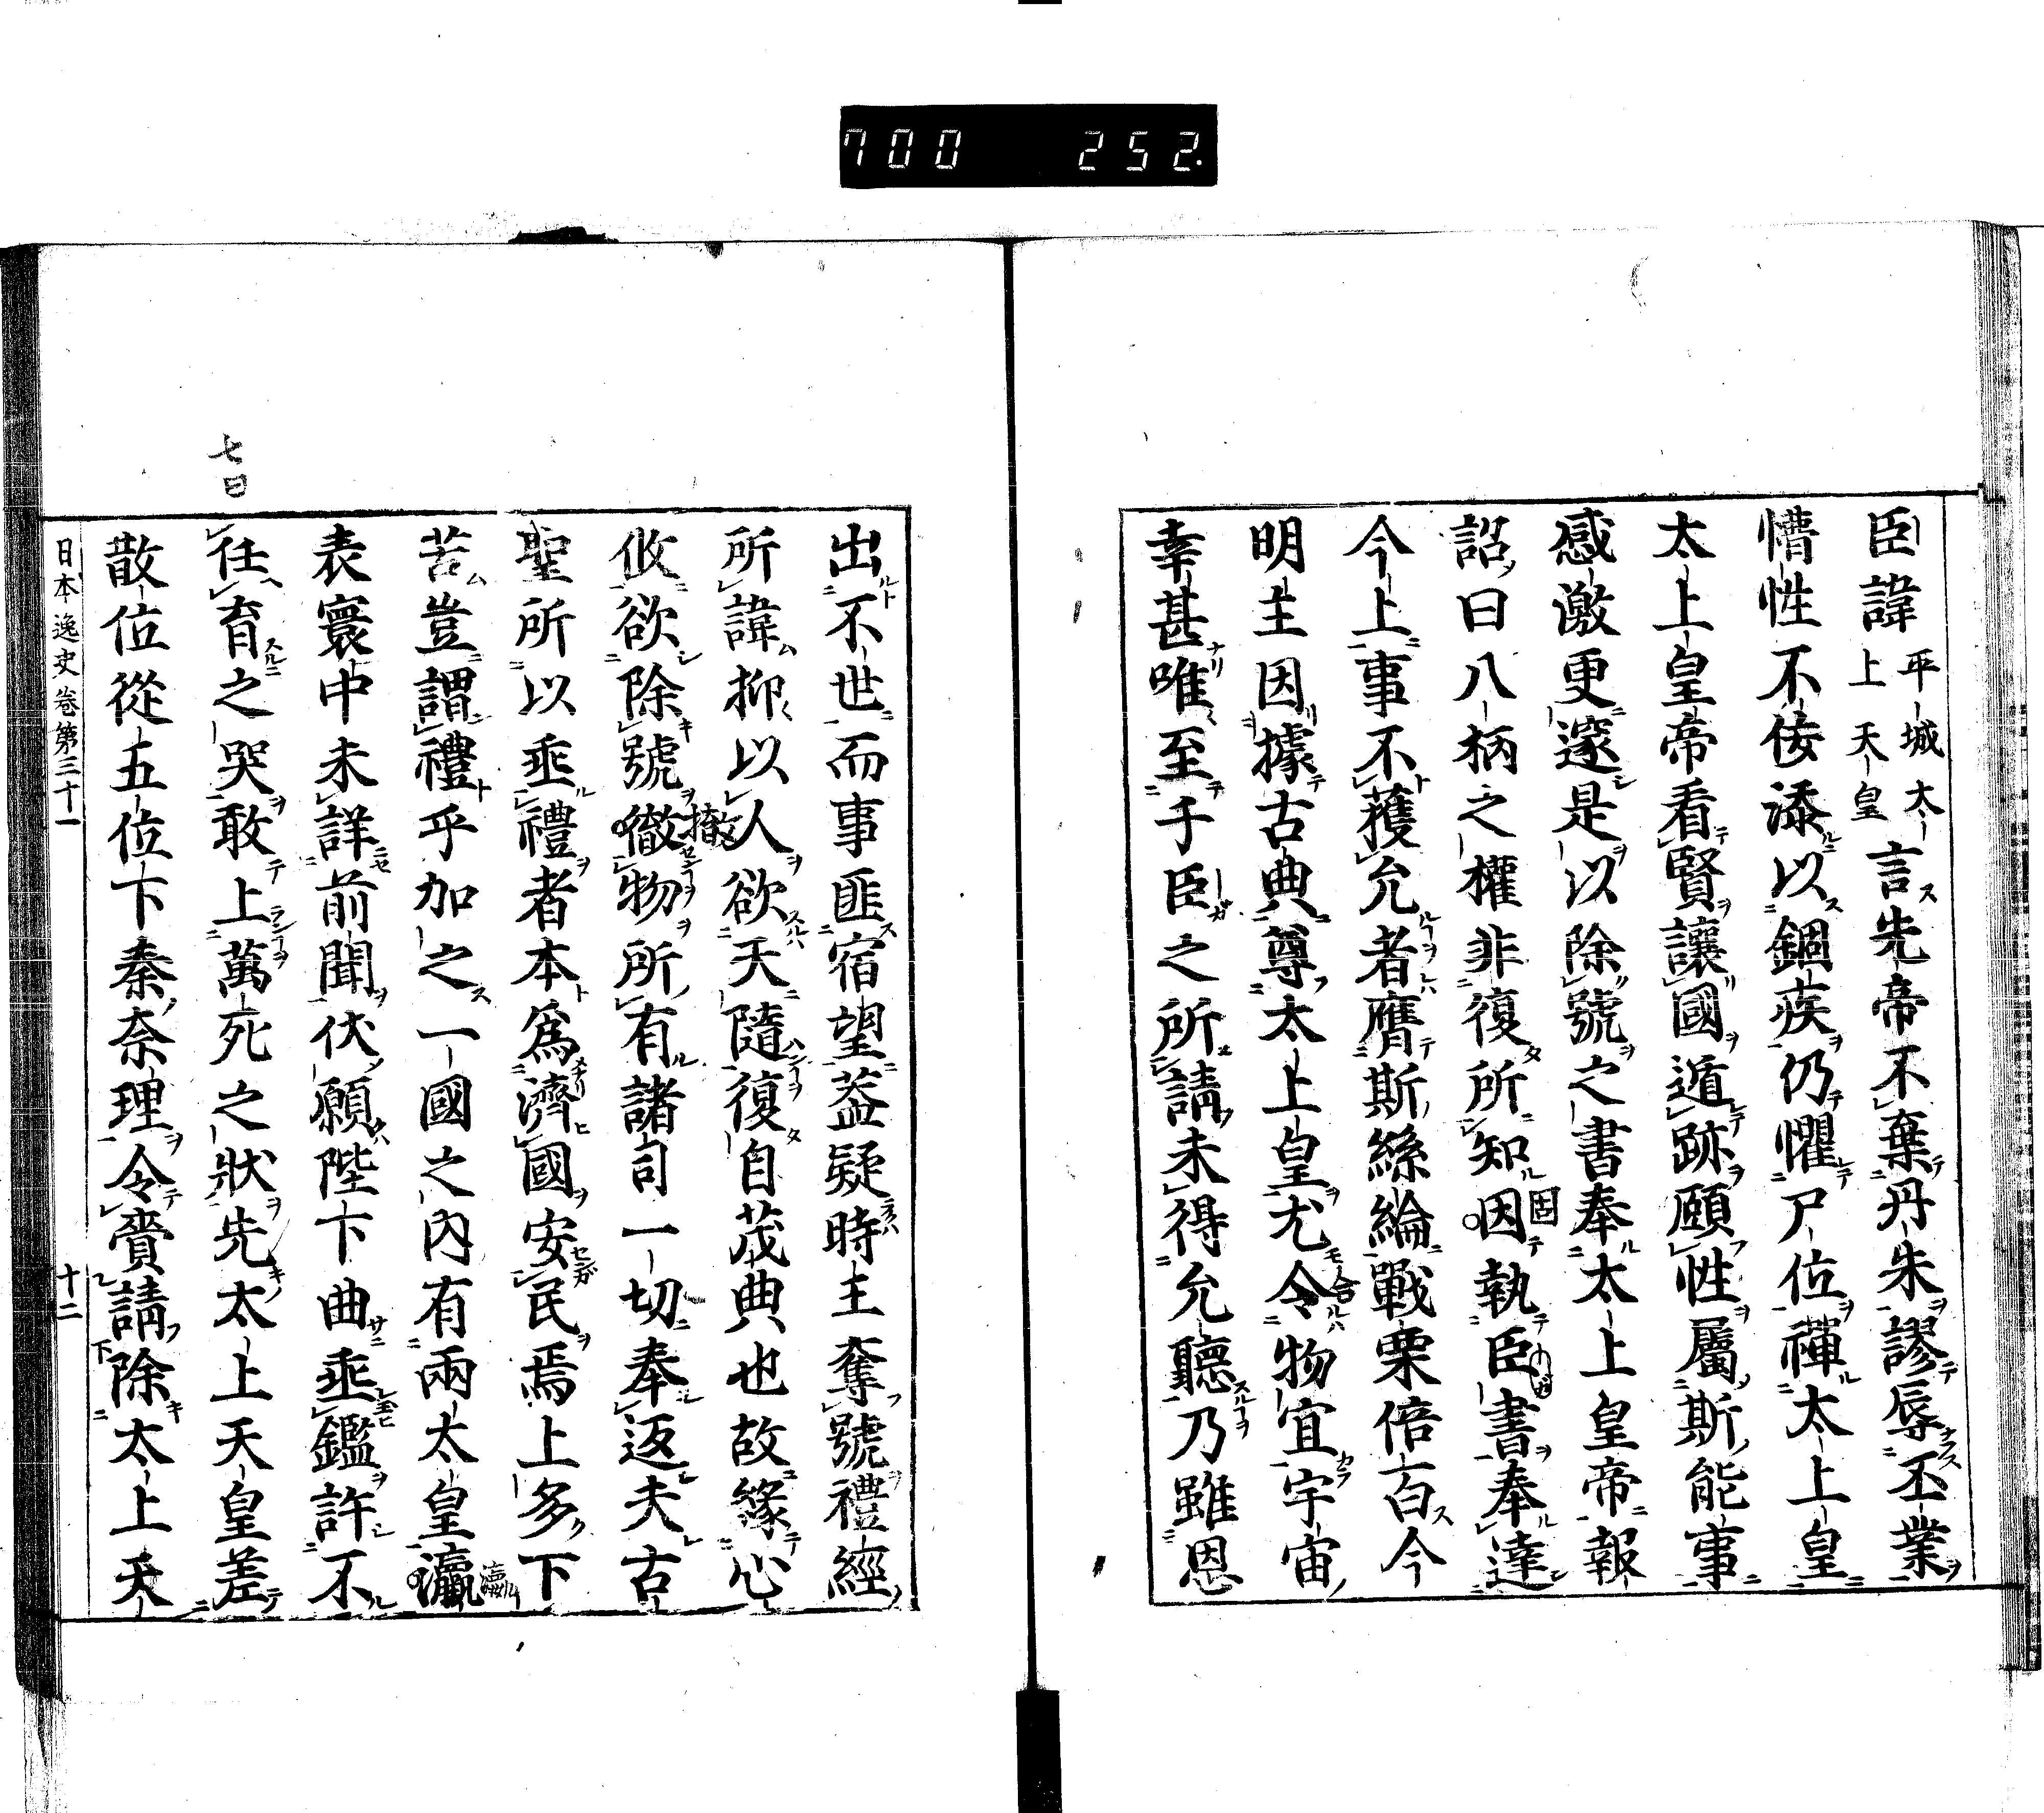 700 252.
臣諱平城太上天皇言先帝不棄丹朱謬辱丕業
懵性不佞添以錮疾仍懼尸位禪太上皇
太上皇帝看賢讓國遁跡頤性屬斯能事
感激更邃是以除號之書奉太上皇帝報
詔曰八柄之權非復所知因執臣書奉達
今上事不獲允者膺斯絲綸戰栗倍百今
明主因據古典尊太上皇尤令物宜宇宙
幸甚唯至于臣之所請未得允聽乃雖恩
出不世而事匪宿望蓋疑時主奪號禮經
所諱抑以人欲天隨復自茂典也故緣心
攸欲除號徹物所有諸司一切奉返夫古
聖所以垂禮者本爲濟國安民焉上多下
苦豈謂禮乎加之一國之內有兩太皇瀛
表寰中未詳前聞伏願陛下曲垂鑑許不
任育之哭敢上萬死之狀先太上天皇差
散位從五位下秦奈理令賚請除太上天
七日
日本逸史卷第三十一
十二